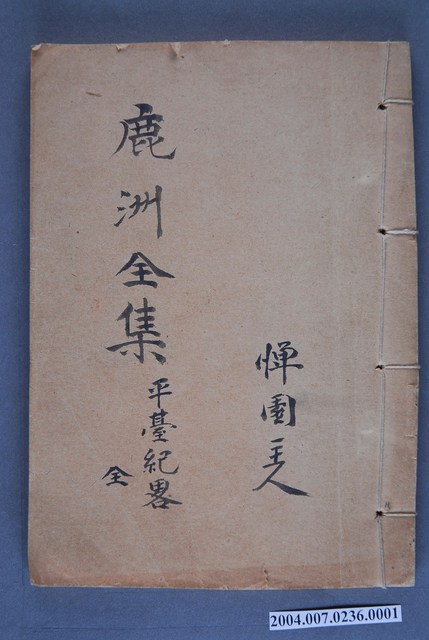 憚園主人
鹿洲全集
平臺紀畧
全
2004.007.0236.0001